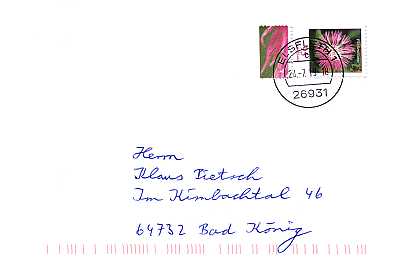 ELSFLETH 1
24.-7.
26931
Herrn
Klaus Pietsch
Im Kimbachtal 46
64732 Bad König